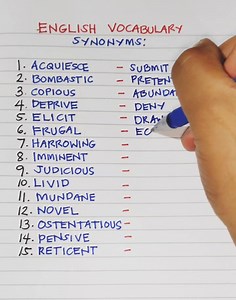 ENGLISH VOCABULARY
SYNONYMS:
1. ACQUIESCE - SUBMIT
2. BOMBASTIC - PRETEN
3. COPIOUS - ABUNDA
4. DEPRIVE - DENY
5. ELICIT - DRAW
6. FRUGAL - EC
7. HARROWING -
8. IMMINENT -
9. JUDICIOUS -
10. LIVID -
11. MUNDANE -
12. NOVEL -
13. OSTENTATIOUS -
14. PENSIVE -
15. RETICENT -